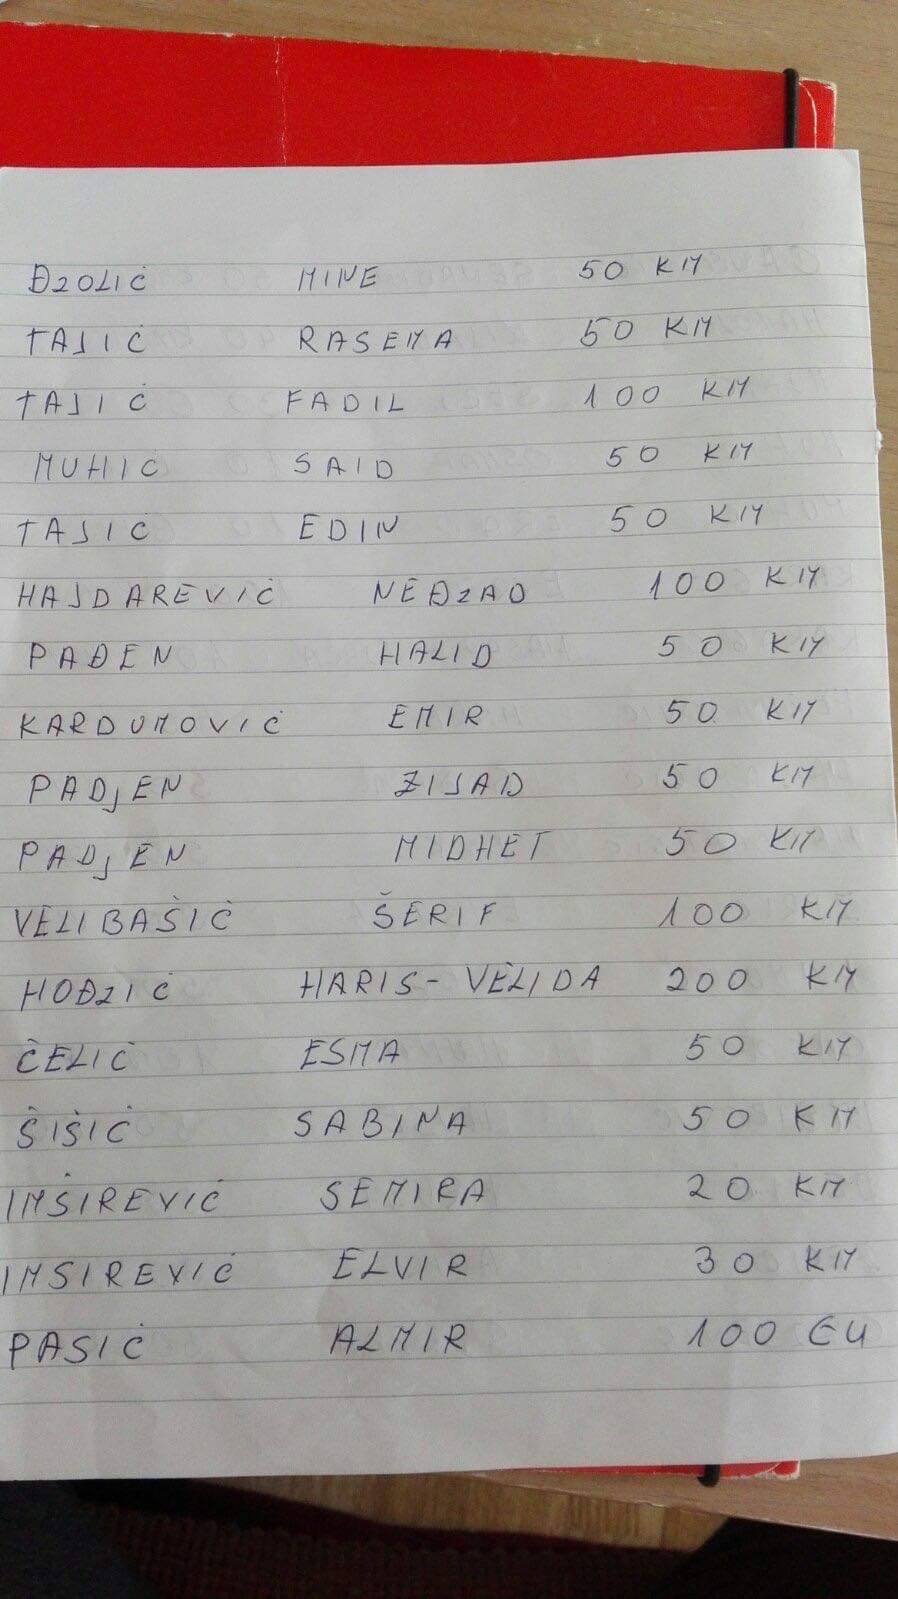 ĐZOLIĆ MINE 50 KM
TAJIĆ RASEMA 50 KM
TAJIĆ FADIL 100 KM
MUHIĆ SAID 50 KM
TAJIĆ EDIN 50 KM
HAJDAREVIĆ NEĐZAD 100 KM
PAĐEN HALID 50 KM
KARDUMOVIĆ EMIR 50 KM
PADJEN ZIJAD 50 KM
PADJEN MIDHET 50 KM
VELIBAŠIĆ ŠERIF 100 KM
HOĐZIĆ HARIS- VELIDA 200 KM
ČELIĆ ESMA 50 KM
ŠIŠIĆ SABINA 50 KM
IMŠIREVIĆ SEMIRA 20 KM
IMSIREVIĆ ELVIR 30 KM
PASIĆ ALMIR 100 EU